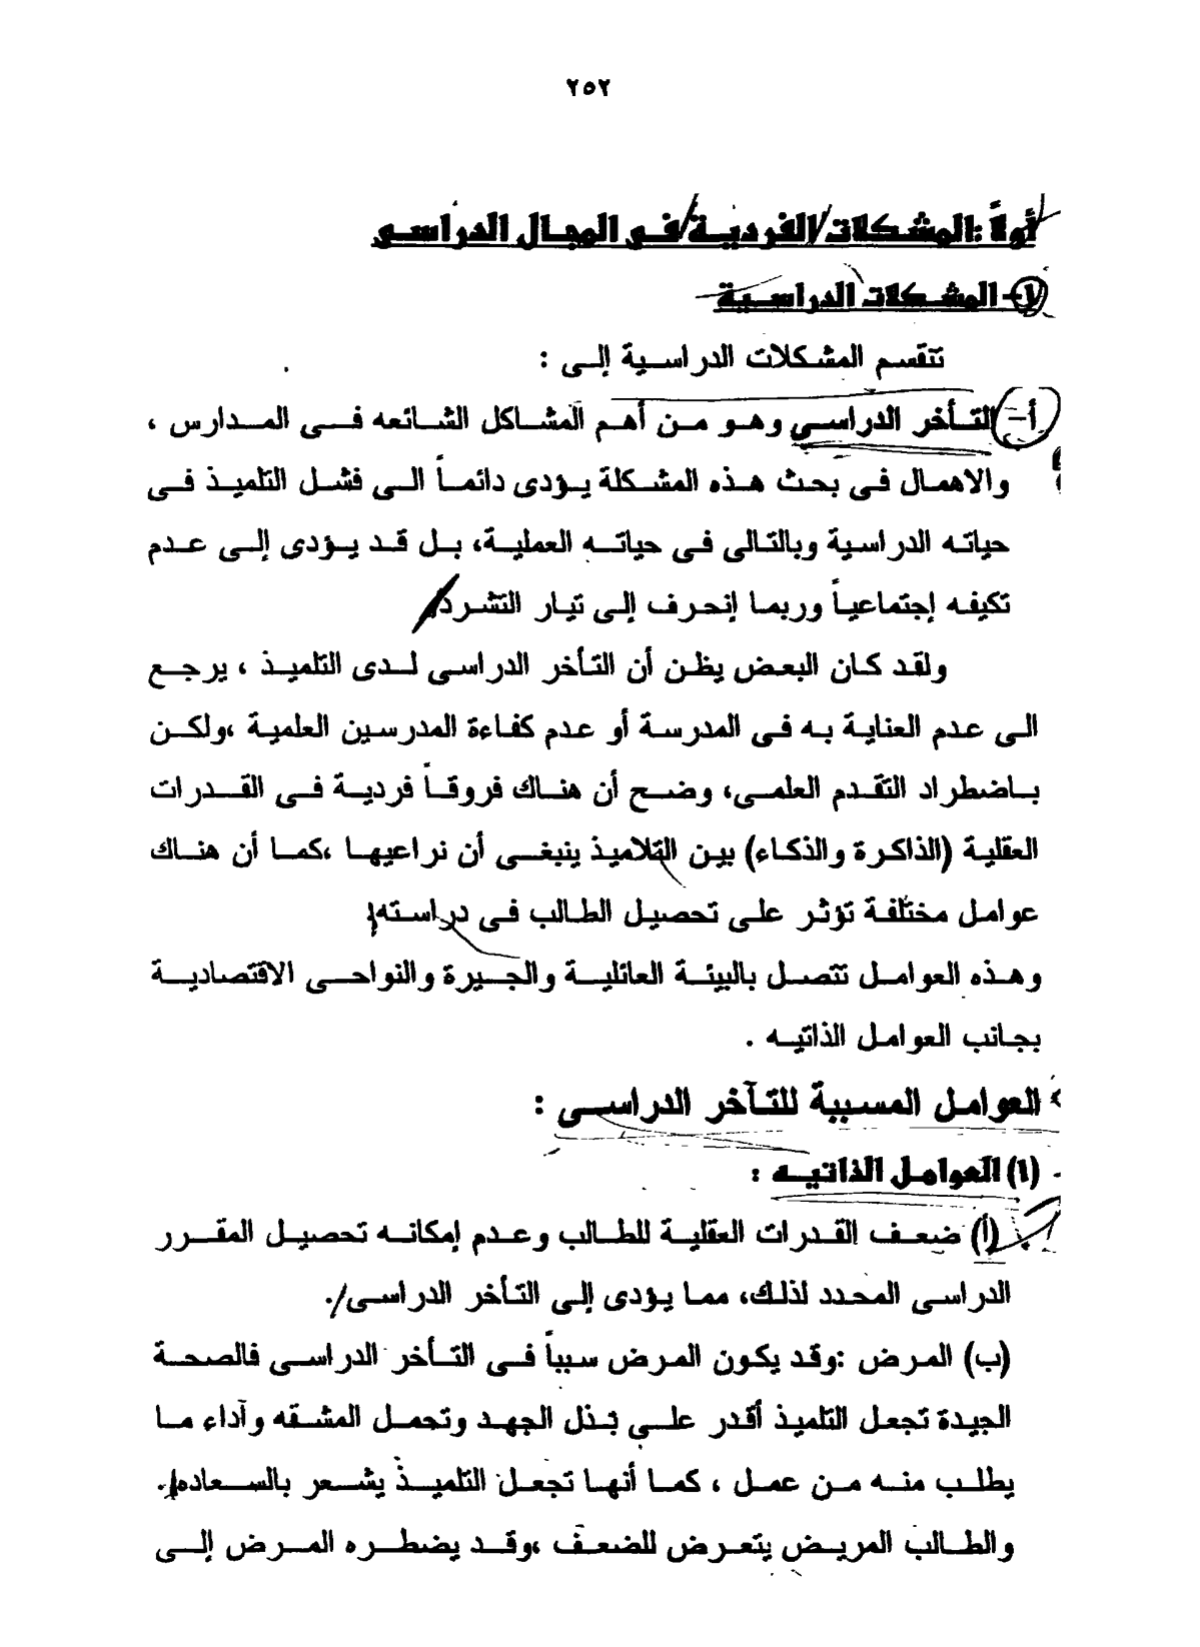 ٢٥٢
أولاً :المشكلات الفردية فى المجال الدراسى
١- المشكلات الدراسية
تنقسم المشكلات الدراسية إلى :
أ- التأخر الدراسى وهو من أهم المشاكل الشائعه فى المدارس ،
والاهمال فى بحث هذه المشكلة يؤدى دائماً الى فشل التلميذ فى
حياته الدراسية وبالتالى فى حياته العملية، بل قد يؤدى إلى عدم
تكيفه إجتماعياً وربما إنحرف إلى تيار التشرد.
ولقد كان البعض يظن أن التأخر الدراسى لدى التلميذ ، يرجع
الى عدم العناية به فى المدرسة أو عدم كفاءة المدرسين العلمية ،ولكن
باضطراد التقدم العلمى، وضح أن هناك فروقاً فردية فى القدرات
العقلية (الذاكرة والذكاء) بين التلاميذ ينبغى أن نراعيها ،كما أن هناك
عوامل مختلفة تؤثر على تحصيل الطالب فى دراسته
وهذه العوامل تتصل بالبيئة العائلية والجيرة والنواحى الاقتصادية
بجانب العوامل الذاتيه .
العوامل المسببة للتآخر الدراسى :
(١) العوامل الذاتيه :
(أ) ضعف القدرات العقلية للطالب وعدم إمكانه تحصيل المقرر
الدراسى المحدد لذلك، مما يؤدى إلى التأخر الدراسى.
(ب) المرض :وقد يكون المرض سبباً فى التأخر الدراسى فالصحة
الجيدة تجعل التلميذ أقدر على بذل الجهد وتحمل المشقه وآداء ما
يطلب منه من عمل ، كما أنها تجعل التلميذ يشعر بالسعاده.
والطالب المريض يتعرض للضعف ،وقد يضطره المرض إلى